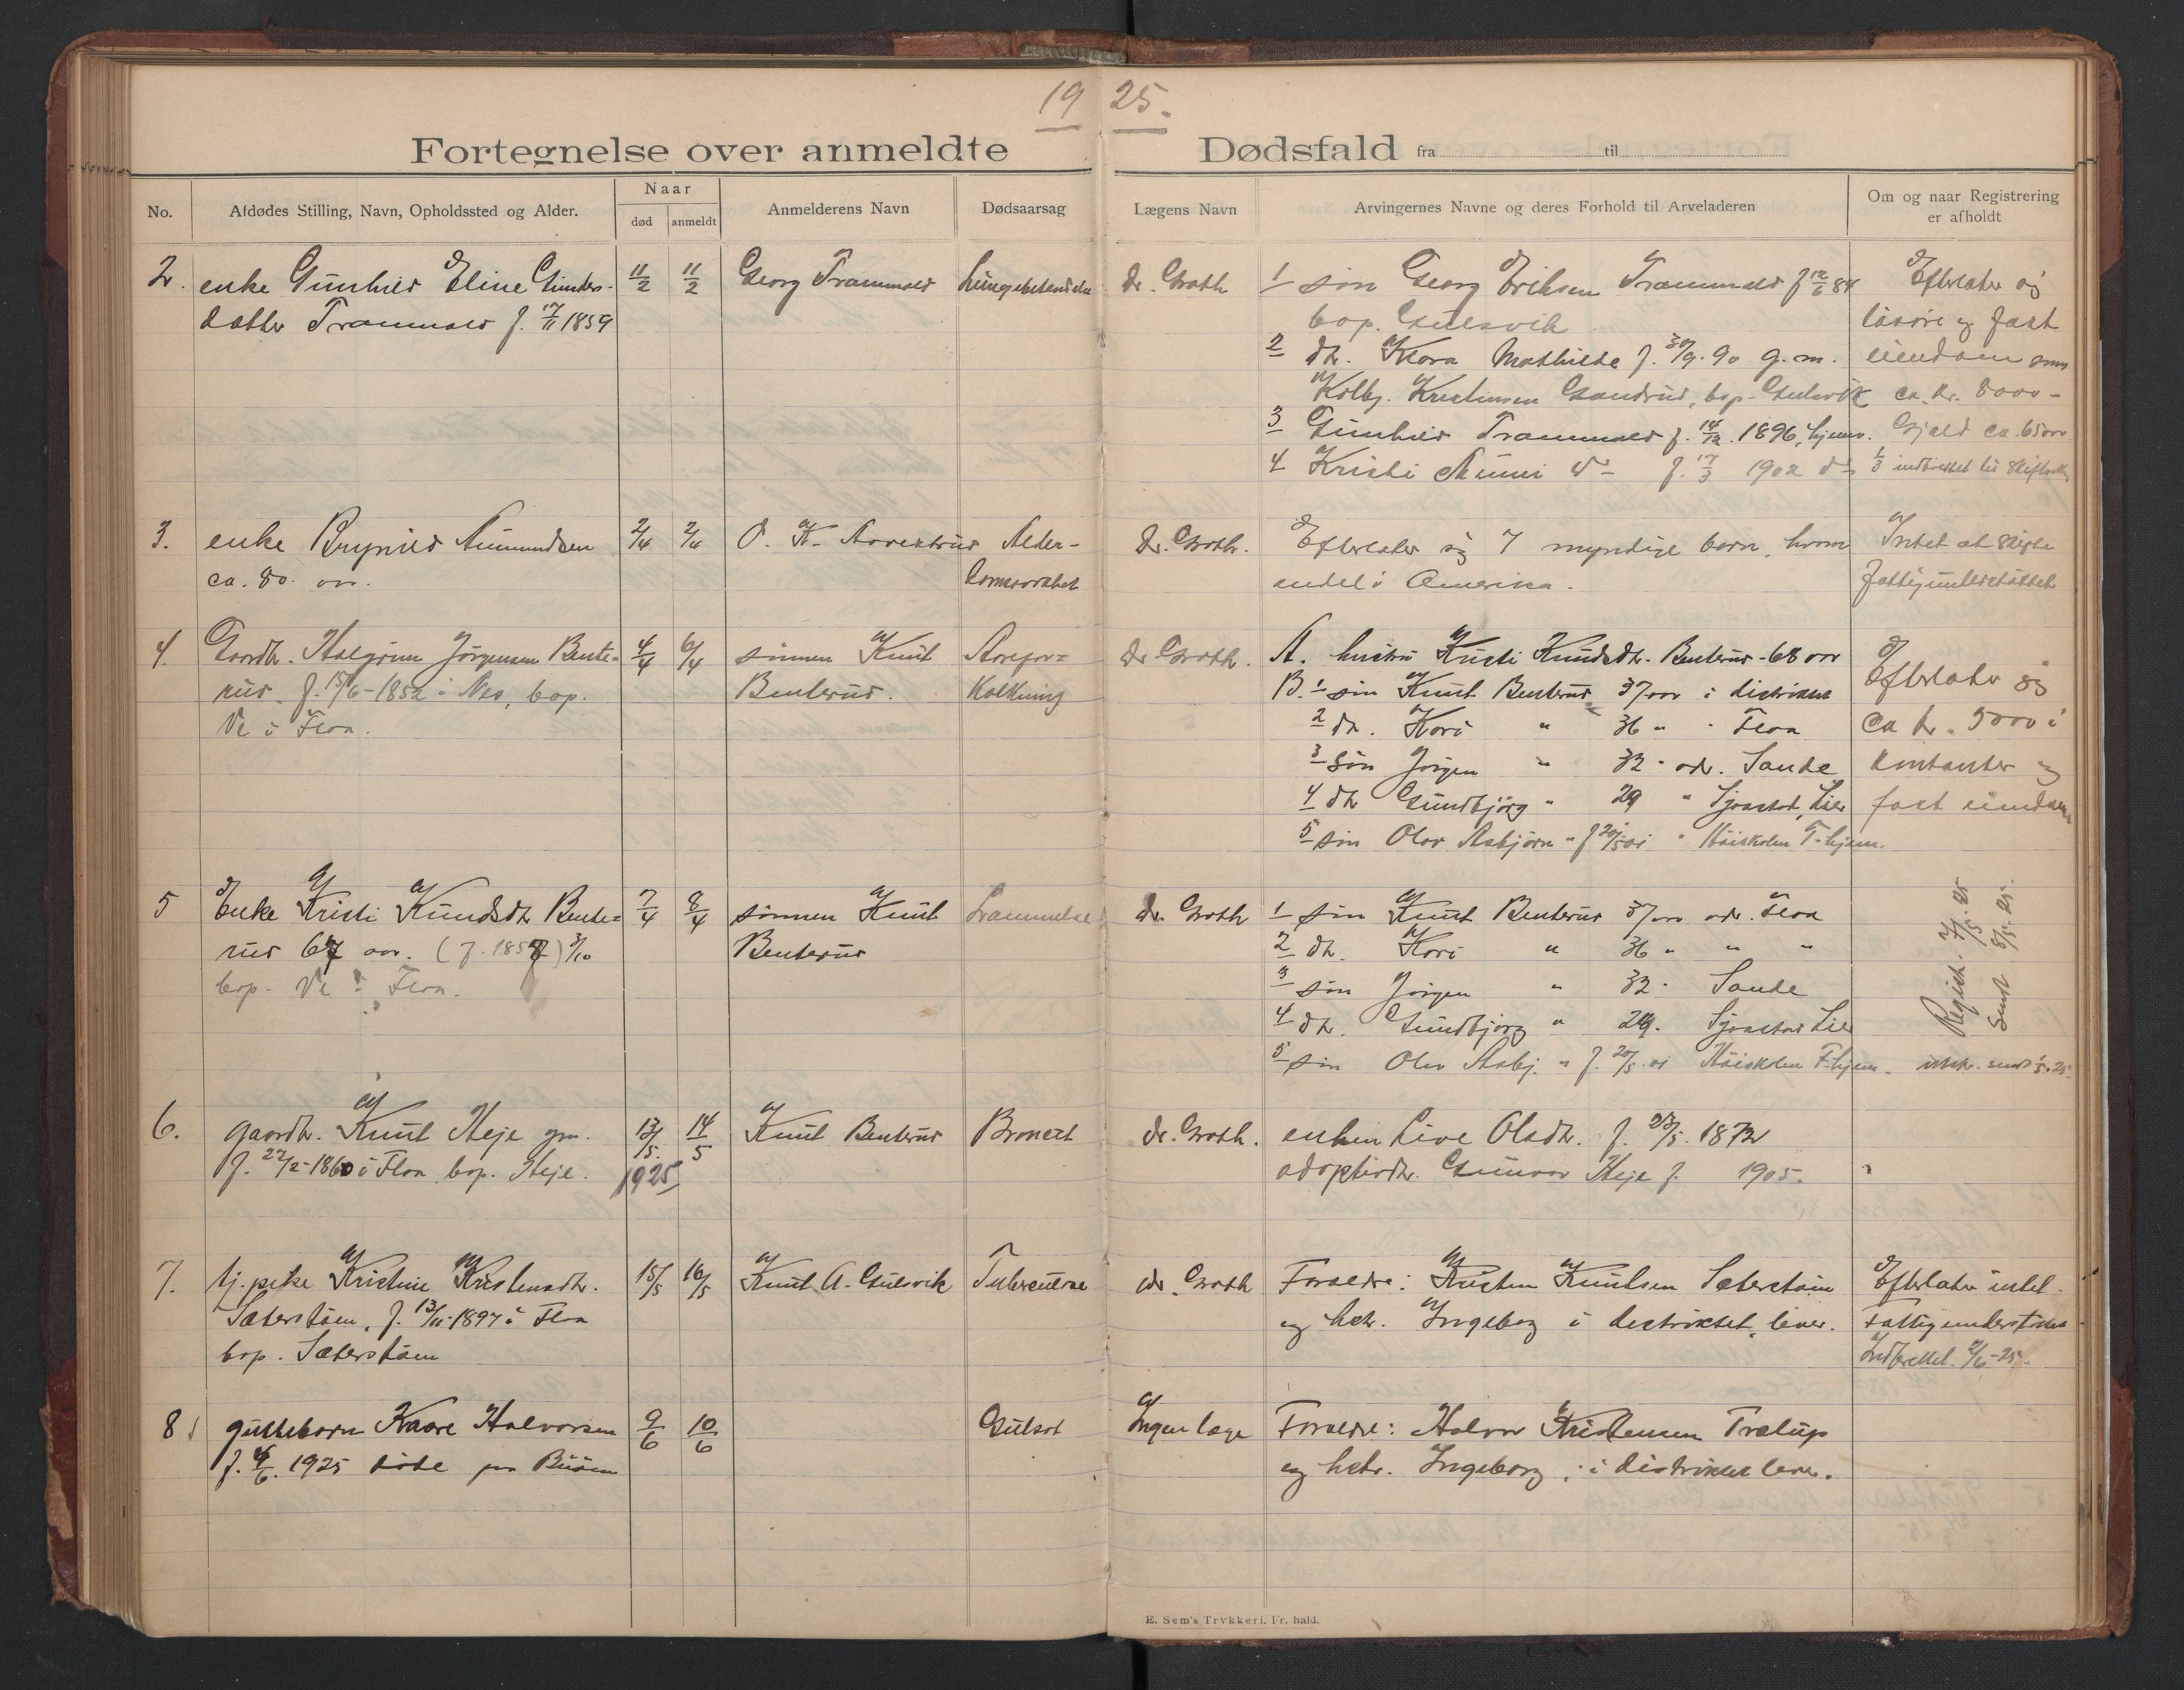 19 25.
Fortegnelse over anmeldte Dødsfald fra til
No.
Afdødes Stilling, Navn, Opholdssted og Alder.
Naar
død anmeldt
Anmelderens Navn
Dødsaarsag
Lægens Navn
Arvingernes Navne og deres Forhold til Arveladeren
Om og naar Registrering
er afholdt
2. enke Gunhild Eline Gunders-
datter Trommald f. 7/11 1859
11/2 11/2
Georg Trommald
Lungebetændelse
Dr. Groth
1 søn Georg Eriksen Trommald f 12/6 84
bop. Gulsvik
2 dtr. Klara Mathilde f. 30/9.90 g.m.
Kolbj. Kristiansen Sandrud, bop. Gulsvik
3 Gunhild Trommald f. 14/12. 1896, hjemv.
4 Kristi f. 17/3 1902 do
Efterlater sig
løsøre og fast
eiendom
ca. kr. 8000 -
Gjeld ca. 6500
1/3 indberettet til Skifteretten
3. enke Brynild Aamundsen
ca. 80. aar.
2/4 2/4
O. K.
Alder-
domssvakhet
Dr. Groth.
Efterlater sig 7 myndige barn, hvorav
endel i Amerika.
Intet at skifte
fattigunderstøttet
4. Gaardbr. Halgrim Jørgensen Bente-
rud, f. 15/6-1852 i Nes, bop.
Ve i Flaa.
4/4 6/4
sønnen Knut
Benterud.
Aarefor-
kalkning
Dr Groth.
A. hustru Kristi Knudsdtr. Benterud - 68 aar
B. 1 søn Knut Benterud 37 aar i distriktet
2 dtr. Kari " 36 " " Flaa
3 søn Jørgen " 32 " adr. Sande
4 dtr Gundbjørg " 29 " Sjaastad, Lier
5 søn Olav Asbjørn " f 20/5 01 " Høiskolen T-hjem.
Efterlater sig
ca kr. 5000 i
kontanter og
fast eiendom
5 Enke Kristi Knudsdtr Bente-
rud 67 aar. (f. 1857) 3/10
bop. Ve i Flaa.
7/4 8/4
sønnen Knut
Benterud
Lammelse
Dr. Groth
1 søn Knut Benterud 37 aar adr. Flaa
2 dtr. Kari " 36 " " "
3 søn Jørgen " 32 " Sande
4 dtr. Gundbjørg " 29. Sjaastad Lier
5 søn Olav Asbj. " f. 20/5.01 Høiskolen T-hjem.
Regist. 7/5.25
Sendt 8/5.25.
6. gaardbr. Knut Heje gm.
f. 22/2-1860 i Flaa, bop. Heje.
13/5. 14/5
1925
Knut Benterud
Dr. Groth.
enken Live Olsdtr. f. 23/5. 1872
adoptivdtr. Gunvor Heje f. 1905.
7. tj.pike Kristine Kristensdtr.
Sæterstøen, f. 13/11-1897 i Flaa
bop. Sæterstøen
15/5 16/5
Knut A. Gulsvik
Tuberculose
dr. Groth
Forældre: Kristen Knutsen Sæterstøen
og hstr. Ingeborg i distriktet, lever.
Efterlater intet.
Fattigunderstøttet
Indberettet. 2/6-25.
8 guttebarn Kaare Halvorsen
f. 4/6. 1925 døde paa Buøen
9/6 10/6
Gulsot
Ingen læge
Forældre: Halvor Kristensen Trælup
og hstr. Ingeborg, i distriktet lever.
E. Sem's Trykkeri. Fr. hald.